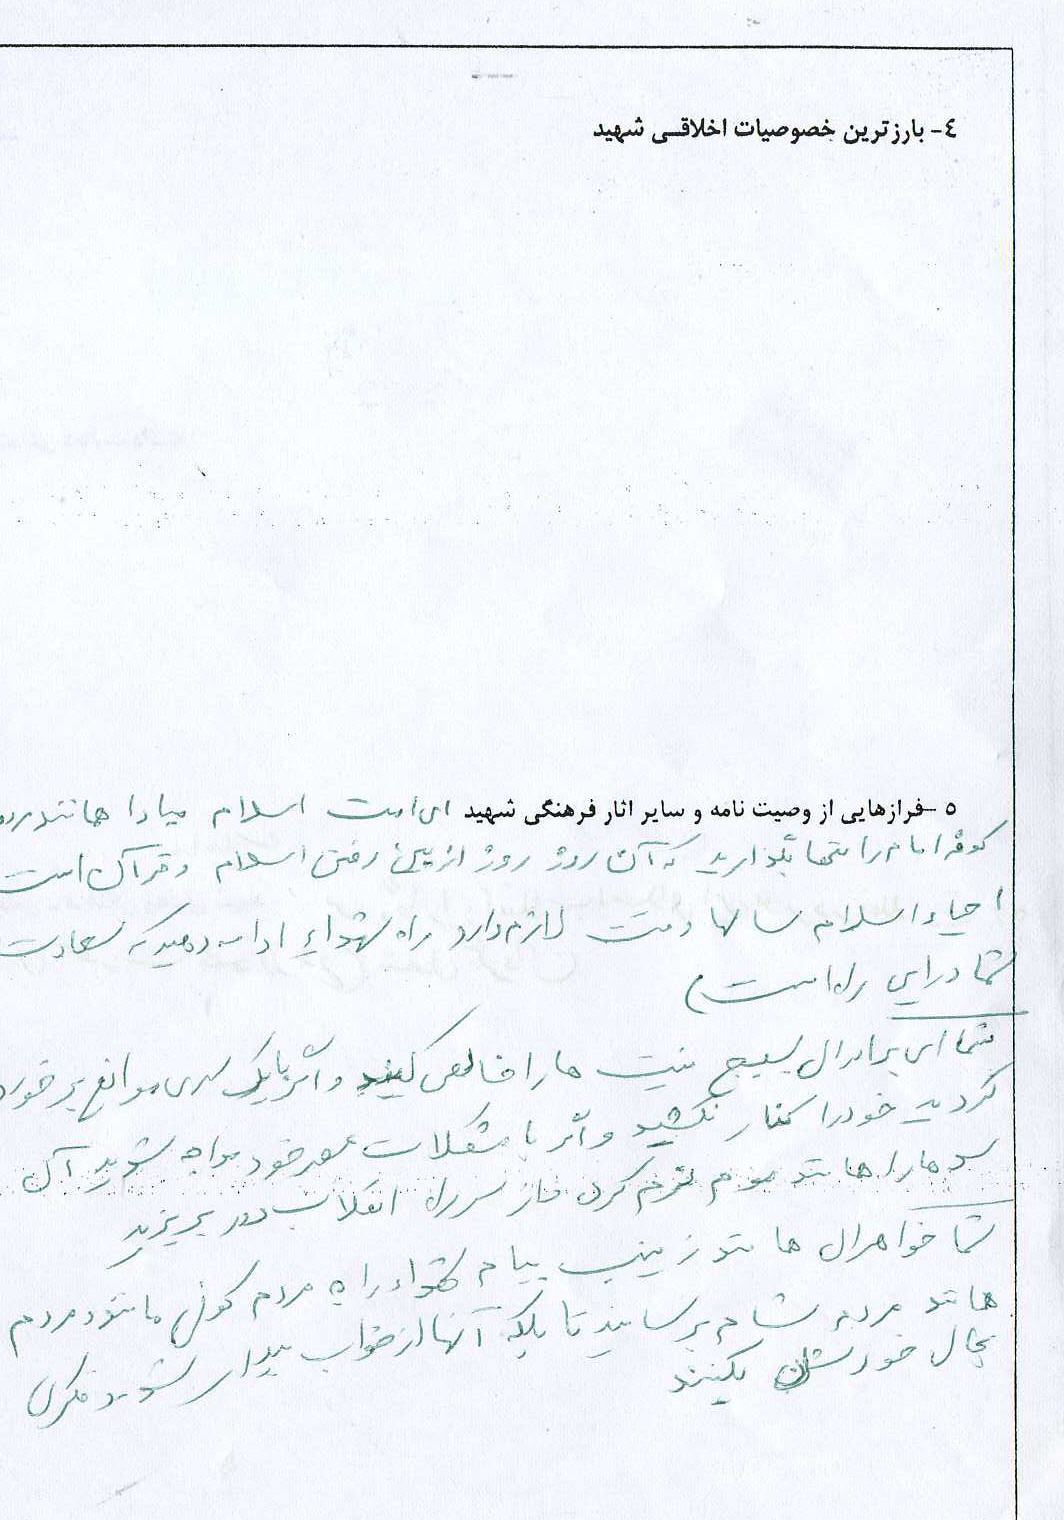 ٤- بارزترین خصوصیات اخلاقی شهید
٥-فرازهایی از وصیت نامه و سایر اثار فرهنگی شهید ای امت اسلام مبادا همانند مردم
کوفه امام را تنها بگذارید که آن روز روز از بین رفتن اسلام و قرآن است
احیاء اسلام سالها وقت لازم دارد راه شهداء ادامه دهید که سعادت
شما در این راه است)
شما ای برادران بسیج نیت ها را خالص کنید و اگر با یک سری موانع برخورد
کردید خود را کنار نکشید و اگر با مشکلات عصر خود مواجه شوید آن
سدها را همانند موم نرم کرده از سر راه انقلاب دور بریزید
شما خواهران همانند زینب پیام شهداء را به مردم کوفی مانند مردم
همانند مردم شام برسانید تا بلکه آنها از خواب بیدار شوید فکری
بحال خودشان بکنند